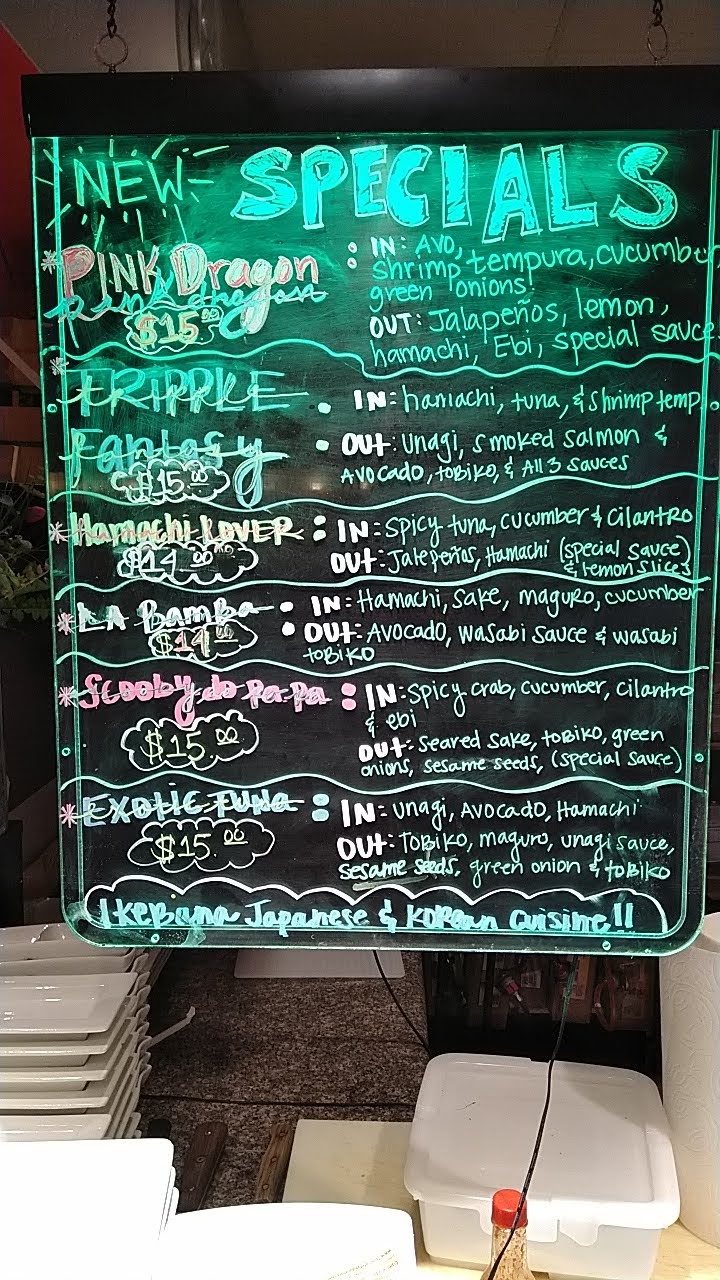 NEW SPECIALS
* PINK Dragon : IN: AVO,
shrimp tempura, cucumber
pink dragon green onions
$15.00 OUT: Jalapeños, lemon,
hamachi, Ebi, special sauce
* TRIPPLE . IN: hamachi, tuna, & shrimp temp.
Fantasy . OUT: Unagi, smoked salmon &
$15.00 AVOCADO, TOBIKO, & All 3 SAUCES
* Hamachi LOVER : IN: Spicy tuna, cucumber & cilantro
$14.00 OUT: Jalepeños, Hamachi (special sauce)
& lemon slices
* LA Bamba : IN: Hamachi, Sake, maguro, cucumber
$14.00 OUT: AVOCADO, wasabi sauce & wasabi
tobiko
* Scooby do pa pa : IN: spicy crab, cucumber, cilantro
& ebi
$15.00 OUT: seared sake, tobiko, green
onions, sesame seeds, (special sauce)
* EXOTIC TUNA : IN: unagi, AVOCADO, Hamachi
$15.00 OUT: TOBIKO, maguro, unagi sauce,
sesame seeds, green onion & tobiko
IKEBana Japanese & Korean Cuisine!!